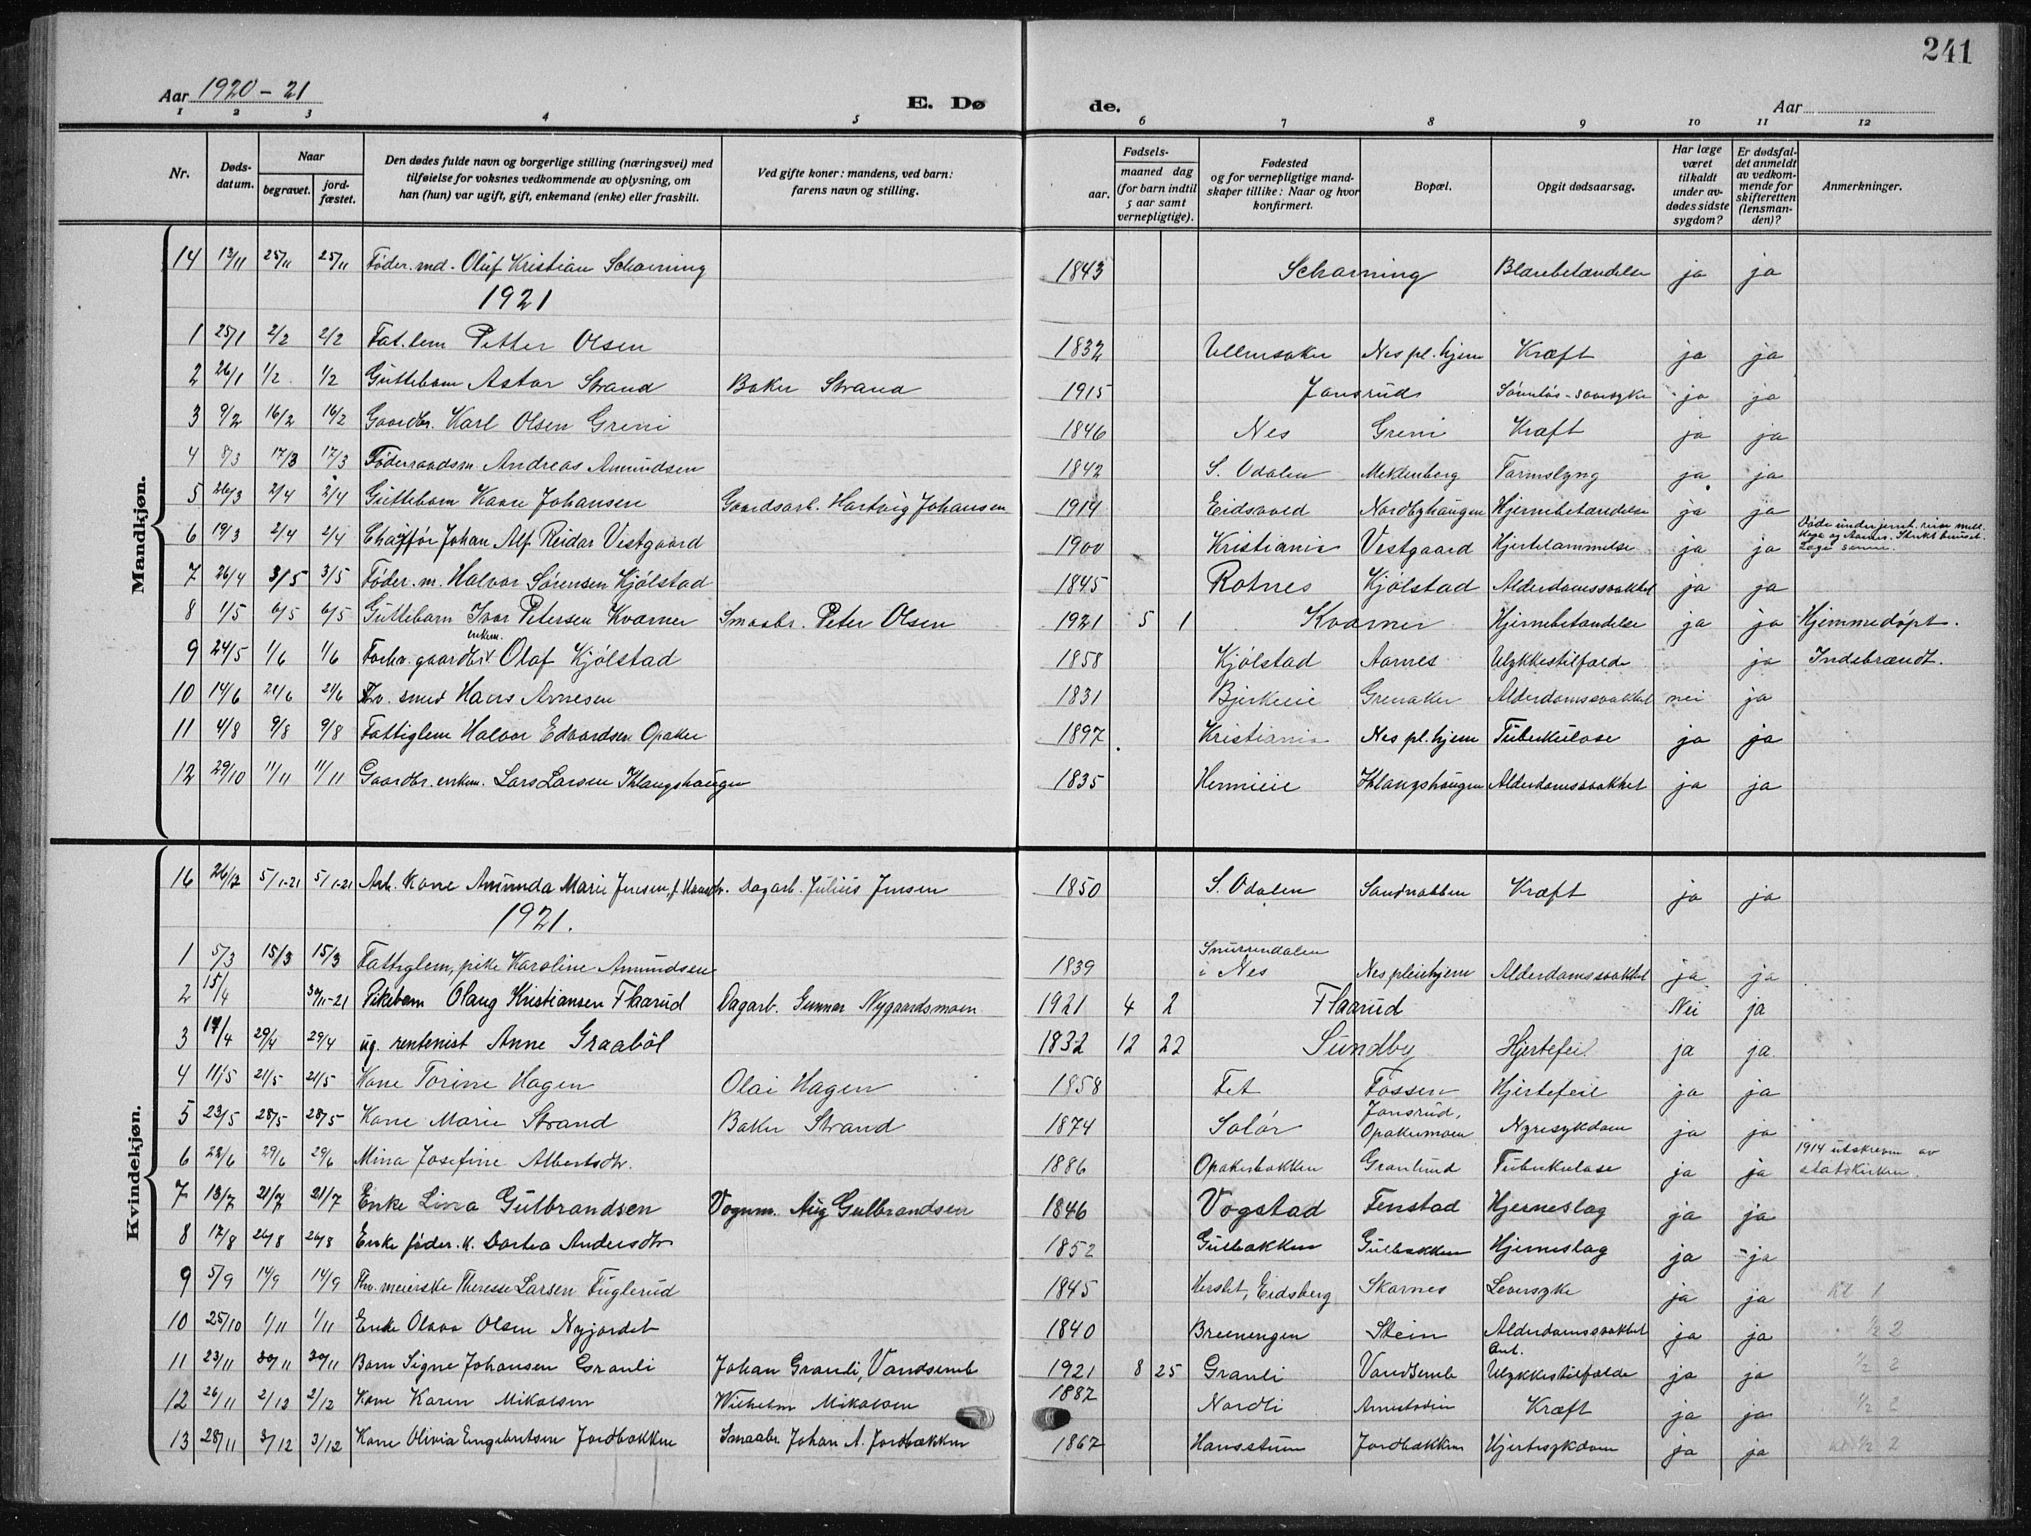 241
Aar 1920-21 E. Dø de. Aar
1 2 3 4 5 6 7 8 9 10 11 12
Nr. Døds-datum. Naar begravet. jord-fæstet. Den dødes fulde navn og borgerlige stilling (næringsvei) med tilføielse for voksnes vedkommende av oplysning, om han (hun) var ugift, gift, enkemand (enke) eller fraskilt. Ved gifte koner: mandens, ved barn: farens navn og stilling. Fødsels- aar. maaned dag (for barn indtil 5 aar samt vernepligtige). Fødested og for vernepligtige mandskaper tillike: Naar og hvor konfirmert. Bopæl. Opgit dødsaarsag. Har læge været tilkaldt under avdødes sidste sygdom? Er dødsfaldet anmeldt av vedkommende for skifteretten (lensmanden)? Anmerkninger.
Mandkjøn.
14 13/11 25/11 25/11 Føder.md. Oluf Kristian Scharning 1843 Scharning Blærebetændelse ja ja
1921
1 25/1 2/2 2/2 Fat.lem Petter Olsen 1832 Ullensaker Nes pl.hjem Kræft ja ja
2 26/1 1/2 1/2 Guttebarn Astor Strand Baker Strand 1915 Jansrud ja ja
3 9/2 16/2 16/2 Gaardbr. Karl Olsen Greni 1846 Nes Greni Kræft ja ja
4 8/3 17/3 17/3 Føderaadsm. Andreas Amundsen 1842 S. Odalen Meklenborg Tarmslyng ja ja
5 26/3 2/4 2/4 Guttebarn Kaare Johansen Gaardsarb. Hartvig Johansen 1914 Eidsvold Nordbyhaugen Hjernebetændelse ja ja
6 19/3 2/4 2/4 Chaffør Johan Alf Reidar Vestgaard 1900 Kristiania Vestgaard Hjertelammelse ja ja Døde under jernb. reise mell.
7 26/4 3/5 3/5 Føder.m. Halvor Sørensen Kjølstad 1845 Rotnes Kjølstad Alderdomssvakhet ja ja
8 1/5 6/5 6/5 Guttebarn Ivar Petersen Kvarner Smaabr. Peter Olsen 1921 5 1 Kvarner Hjernebetændelse ja ja Hjemmedøpt.
9 24/5 1/6 1/6 Forhv. gaardbr. enkem. Olaf Kjølstad 1858 Kjølstad Aarnes Ulykkestilfælde ja Indebrændt.
10 14/6 21/6 21/6 Fv. smed Hans Arnesen 1831 Bjerkeie Grenaker Alderdomssvakhet nei ja
11 4/8 9/8 9/8 Fattiglem Halvor Edvardsen Opaker 1897 Kristiania Nes pl.hjem Tuberkulose ja ja
12 29/10 11/11 11/11 Gaardbr. enkem. Lars Larsen Iklangshaugen 1835 Hennieie Iklangshaugen Alderdomssvakhet ja ja
Kvindekjøn.
16 26/12 5/1-21 5/1-21 Arb. Kone Amunda Marie Jensen, f. Hansdtr. Dagarb. Julius Jensen 1850 S. Odalen Sandnabben Kræft ja ja
1921.
1 5/3 15/3 15/3 Fattiglem, pike Karoline Amundsen 1839 Snurrendalen i Nes Nes pleiehjem Alderdomssvakhet ja ja
2 15/4 30/11-21 Pikebarn Olaug Kristiansen Flaarud Dagarb. Gunnar Nygaardsmoen 1921 4 2 Flaarud Nei ja
3 17/4 29/4 29/4 ug. rentenist Anne Graabøl 1832 12 22 Sundby Hjertefeil ja ja
4 11/5 21/5 21/5 Kone Torine Hagen Olai Hagen 1858 Fet Fossen Hjertefeil ja ja
5 23/5 28/5 28/5 Kone Marie Strand Baker Strand 1874 Solør Jansrud, Opakermoen Nyresykdom ja ja
6 22/6 29/6 29/6 Mina Josefine Albertsdtr. 1886 Opakerbakken Granlund Tuberkulose ja ja 1914 utskreven av statskirken.
7 13/7 21/7 21/7 Enke Livea Gulbrandsen Vognm. Aug Gulbrandsen 1846 Vogstad Fenstad Hjerneslag ja ja
8 17/8 26/8 26/8 Enke føder.k. Dortea Andersdtr 1852 Gulbakken Gulbakken Hjerneslag ja ja
9 5/9 14/9 14/9 Fhv. meierske Therese Larsen Fuglerud 1845 Herslet, Eidsberg Skarnes Leversyke ja ja kl 1
10 25/10 1/11 1/11 Enke Olava Olsen Nyjordet 1840 Breeningen Stein Alderdomssvakhet ja ja 1/2 2
11 23/11 30/11 30/11 Barn Signe Johansen Granli Johan Granli, Vandsemb 1921 8 25 Granli Vandsemb Ant. Ulykkestilfælde ja ja 1/2 2
12 26/11 2/12 2/12 Kone Karen Mikalsen Wilhelm Mikalsen 1882 Nordli Kræft ja ja 1/2 2
13 28/11 3/12 3/12 Kone Olivia Engebretsen Jordbakken Smaabr Johan A. Jordbakken 1867 Hansstuen Jordbakken Hjertesykdom ja ja kl 1/2 2